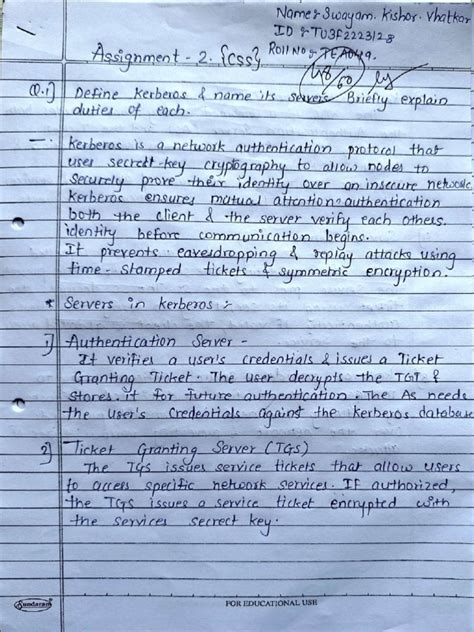 Name:- Swayam. Kishor. Vhatkar
ID :- TU3F2223128
Roll No :- TEA049.
Assignment - 2. {CSS}
Q.1] Define Kerberos & name its servers Briefly explain
duties of each.
Kerberos is a network authentication protocol that
uses secrett-key cryptography to allow nodes to
Securely prove their identity over an insecure network.
Kerberos ensures mutual attention authentication
both the client & the server verify each others
identity before communication begins.
It prevents eavesdropping & replay attacks using
time-stamped tickets & symmetric encryption.
* Servers in kerberos :-
1] Authentication Server -
It verifies a user's credentials & issues a Ticket
Granting Ticket. The user decrypts the TGT &
Stores. it for future authentication. The As needs
the user's credentials against the kerberos database
2] Ticket Granting Server (TGS)
The TGS issues service tickets that allow users
to access specific network services. If authorized,
the TGS issues a service ticket encrypted with
the services secrect key.
Sundaram
FOR EDUCATIONAL USE